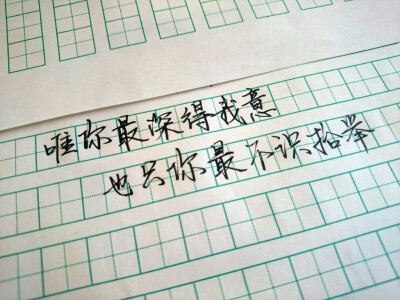 唯你最深得我意
也只你最不识抬举